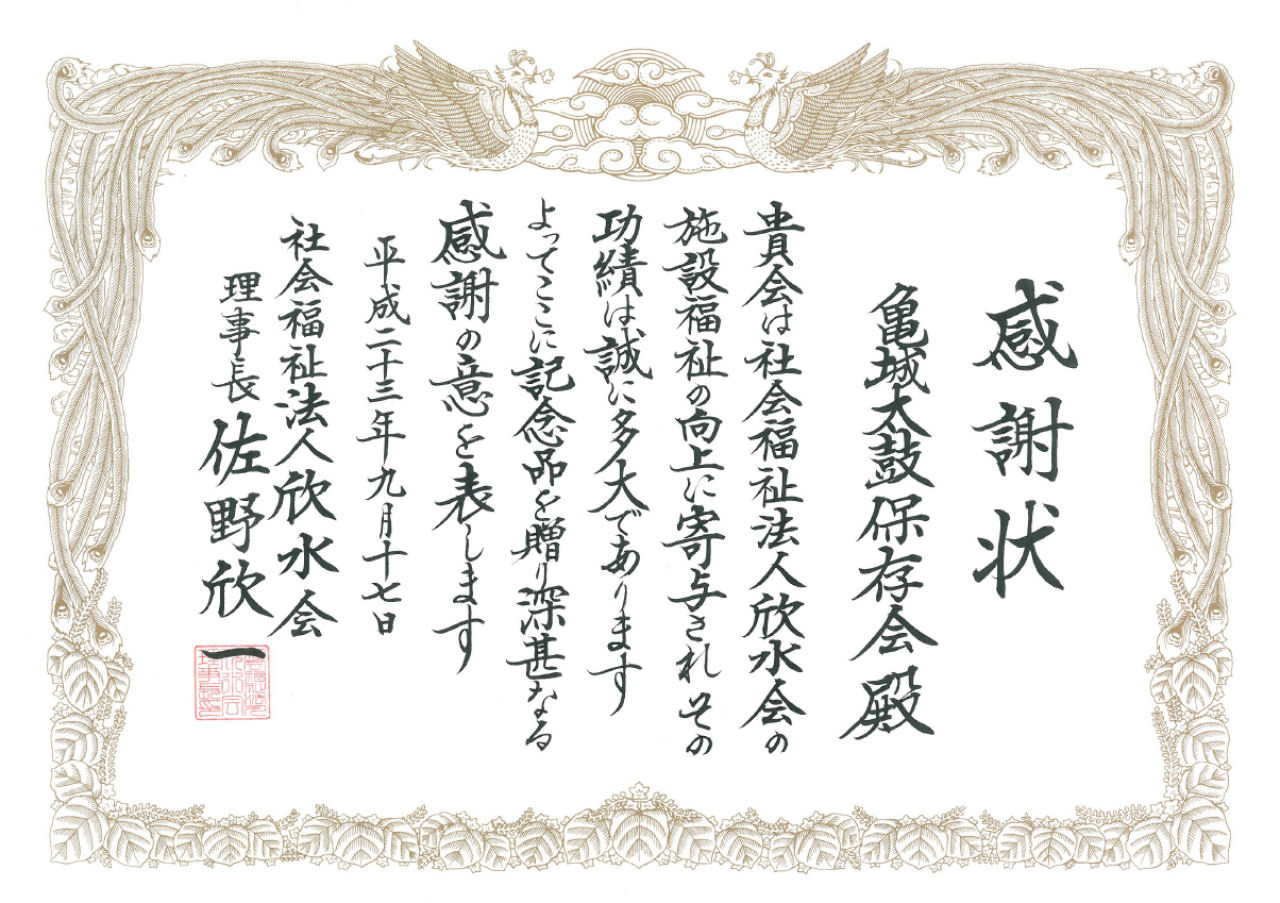 感謝状
亀城太鼓保存会殿
貴会は社会福祉法人欣水会の
施設福祉の向上に寄与され その
功績は誠に多大であります
よってここに記念品を贈り深甚なる
感謝の意を表します
平成二十三年九月十七日
社会福祉法人欣水会
理事長 佐野欣一